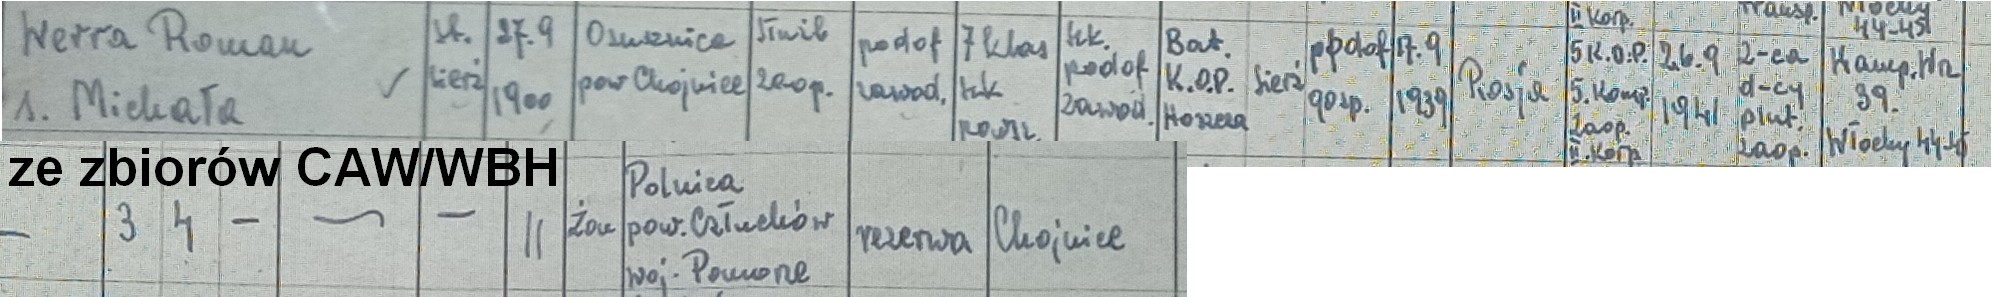 Werra Roman
s. Michała
st.
sierż
27.9
1900
Osusznica
pow Chojnice
zaop.
podof
zawod.
7 klas
kk.
podof
zawod.
Bat.
K.O.P.
Hoszcza
sierż
ppdof
gosp.
17.9
1939
Rosja
II Korp.
5 K.O.P.
5. Komp.
zaop.
II. Korp
26.9
1941
transp.
z-ca
d-cy
plut.
zaop.
Włochy
44-45
Kamp. Wrz
39.
Włochy 44-45
ze zbiorów CAW/WBH
— 3 4 — — — ||
żon
Polnica
pow. Człuchów
woj. Pomorze
rezerwa
Chojnice